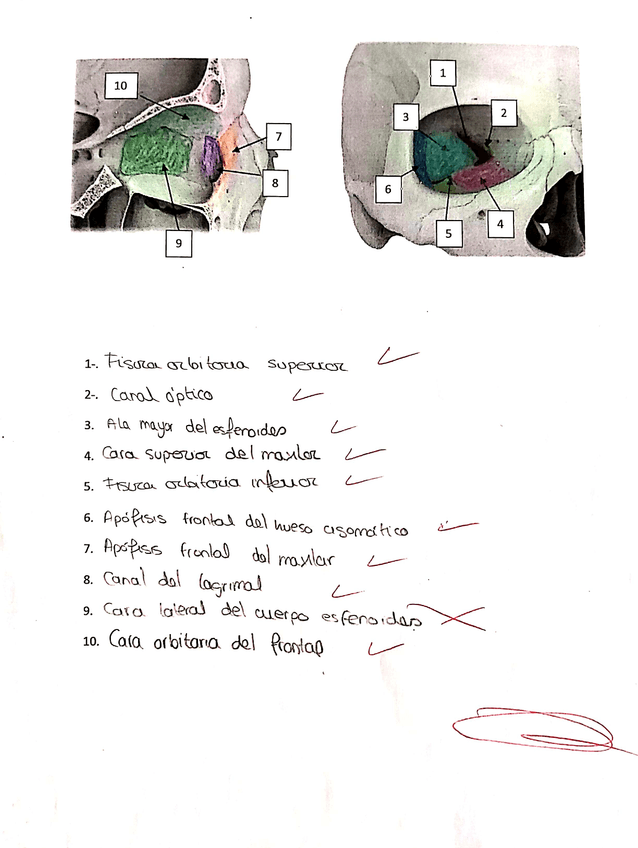 10
7
8
9
1
2
3
6
5
4
1-. Fisura orbitoria superior
2-. Canal óptico
3. Ala mayor del esfenoides
4. Cara superior del maxilar
5. Fisura orbitoria inferior
6. Apófisis frontal del hueso cigomático
7. Apófisis frontal del maxilar
8. Canal del lagrimal
9. Cara lateral del cuerpo esfenoides
10. Cara orbitaria del frontap